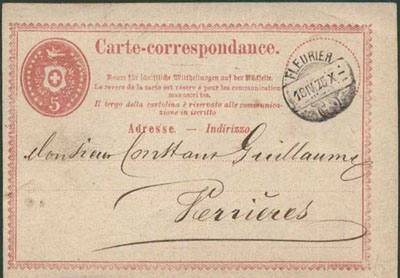 Carte-correspondance.
Raum für schriftliche Mittheilungen auf der Rückseite.
Le revers de la carte est réservé pour les communications
manuscrites.
Il tergo della cartolina è riservato alle comunicazio-
ni in iscritto
5
FLEURIER
Adresse. — Indirizzo.
Monsieur Constant Guillaume
Verrières